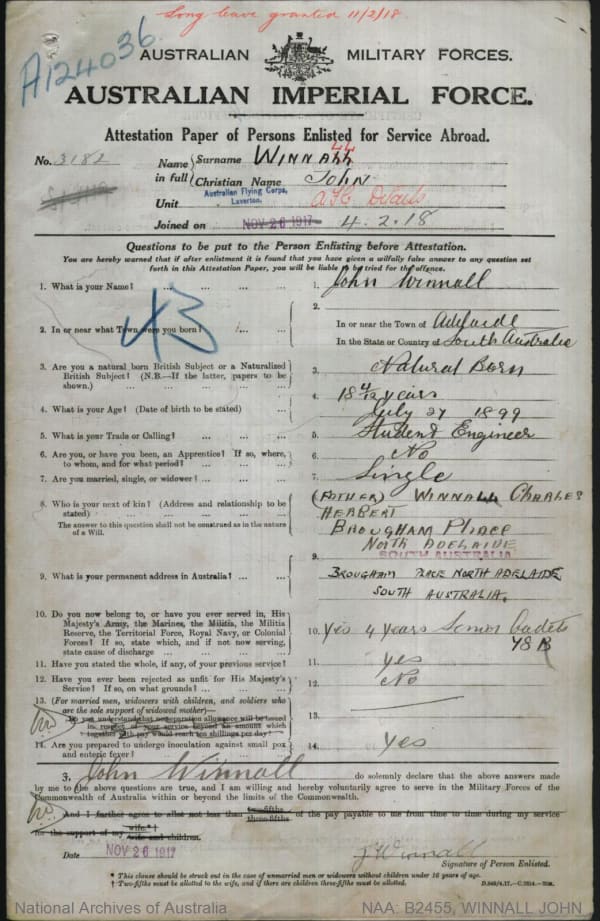 Long leave granted 11/2/18
A124036
AUSTRALIAN MILITARY FORCES.
AUSTRALIAN IMPERIAL FORCE.
Attestation Paper of Persons Enlisted for Service Abroad.
No. 3182 Name in full Surname WINNALL LL
Christian Name JOHN
Unit Australian Flying Corps, Laverton. AFC Details
Joined on NOV 26 1917 4.2.18
Questions to be put to the Person Enlisting before Attestation.
You are hereby warned that if after enlistment it is found that you have given a wilfully false answer to any question set
forth in this Attestation Paper, you will be liable to be tried for the offence.
1. What is your Name? ... ... ... 1. John Winnall
2. In or near what Town were you born? ... ... 2. In or near the Town of Adelaide
In the State or Country of South Australia
3. Are you a natural born British Subject or a Naturalized
British Subject? (N.B.—If the latter, papers to be
shown.) ... ... ... 3. Natural Born
4. What is your Age? (Date of birth to be stated) ... 4. 18 4/12 years
July 27 1899
5. What is your Trade or Calling? ... ... ... 5. Student Engineer
6. Are you, or have you been, an Apprentice? If so, where,
to whom, and for what period? ... ... ... 6. No
7. Are you married, single, or widower? ... ... 7. Single
8. Who is your next of kin? (Address and relationship to be
stated) ... ... ... 8. (FATHER) WINNALL CHARLES
HERBERT
The answer to this question shall not be construed as in the nature
of a Will. BROUGHAM PLACE
NORTH ADELAIDE
SOUTH AUSTRALIA
9. What is your permanent address in Australia? ... ... 9. BROUGHAM PLACE NORTH ADELAIDE
SOUTH AUSTRALIA.
10. Do you now belong to, or have you ever served in, His
Majesty's Army, the Marines, the Militia, the Militia
Reserve, the Territorial Force, Royal Navy, or Colonial
Forces? If so, state which, and if not now serving,
state cause of discharge ... ... ... 10. Yes 4 years Senior Cadets
78 B
11. Have you stated the whole, if any, of your previous service? 11. Yes
12. Have you ever been rejected as unfit for His Majesty's
Service? If so, on what grounds? ... ... 12. No
13. (For married men, widowers with children, and soldiers who
are the sole support of widowed mother)—
Do you understand that no separation allowance will be issued
in respect of your service beyond an amount which
together with pay would reach ten shillings per day? 13.
14. Are you prepared to undergo inoculation against small pox
and enteric fever? ... ... ... 14. Yes
John Winnall do solemnly declare that the above answers made
by me to the above questions are true, and I am willing and hereby voluntarily agree to serve in the Military Forces of the
Commonwealth of Australia within or beyond the limits of the Commonwealth.
And I further agree to allot not less than two-fifths three-fifths of the pay payable to me from time to time during my service
for the support of my wife* † wife and children.
Date NOV 26 1917 J Winnall
Signature of Person Enlisted.
* This clause should be struck out in the case of unmarried men or widowers without children under 16 years of age.
† Two-fifths must be allotted to the wife, and if there are children three-fifths must be allotted.
National Archives of Australia NAA: B2455, WINNALL JOHN